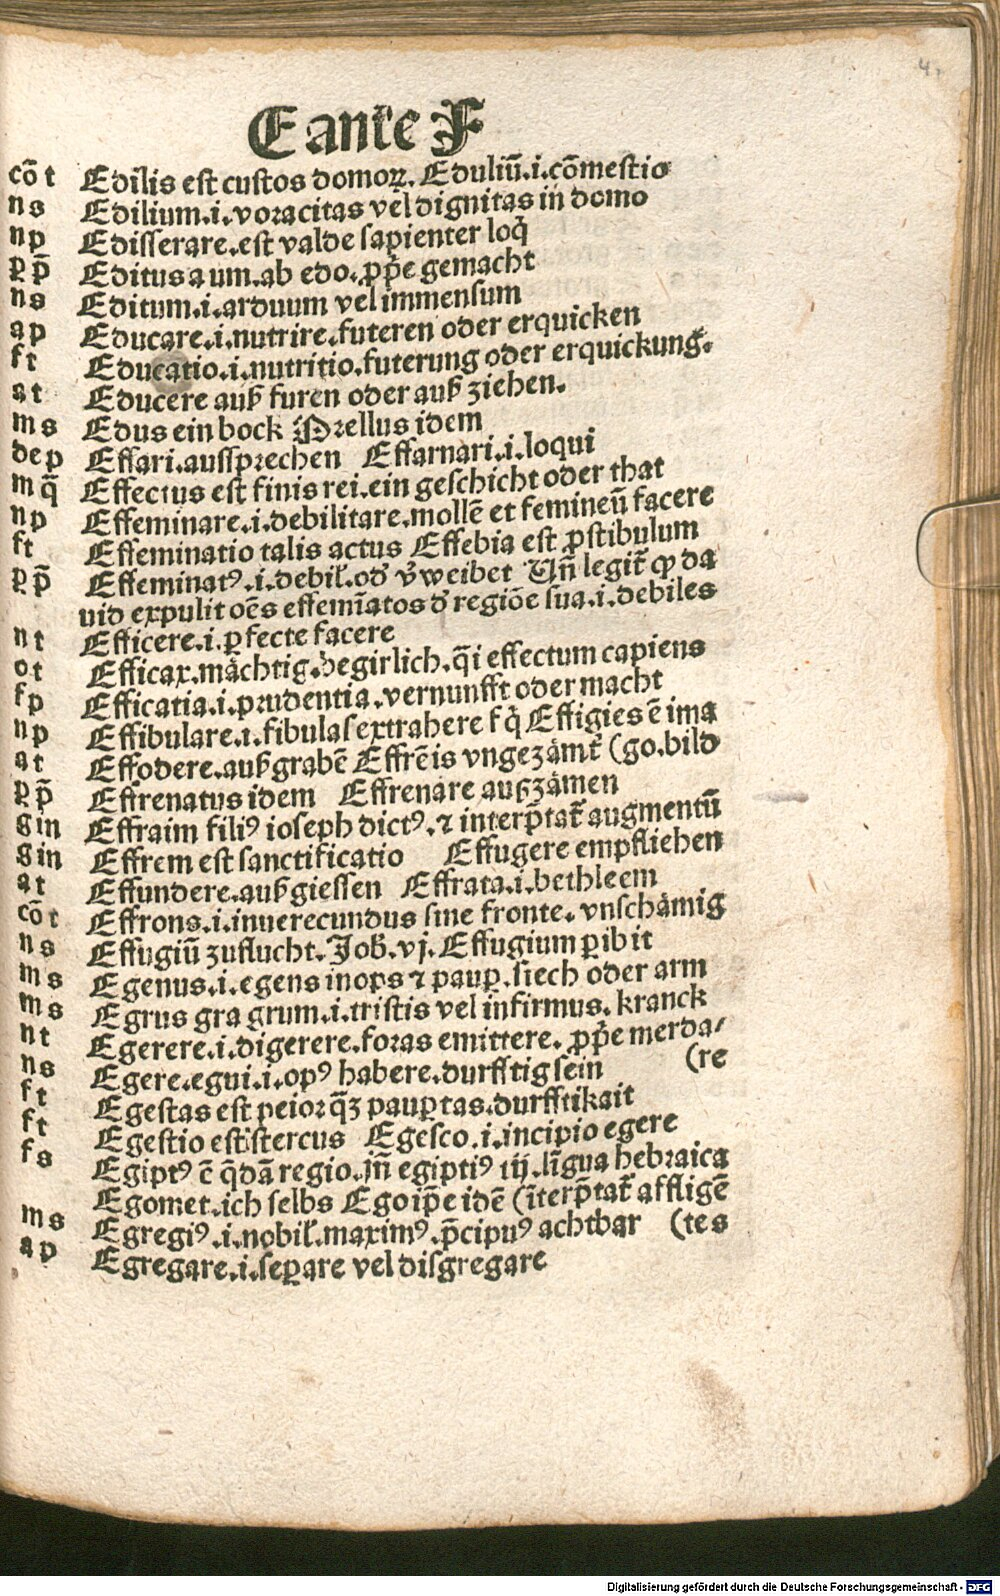 E ante F
cōt Edilis est custos domoꝝ. Eduliū.i.cōmestio
ns Edilium.i.voracitas vel dignitas in domo
np Edisserare.est valde sapienter loq̄
ꝑp̄ Editus a um.ab edo.ꝓp̄e gemacht
ns Editum.i.arduum vel immensum
ap Educare.i.nutrire.futeren oder erquicken
ft Educatio.i.nutritio.futerung oder erquickung.
at Educere auß furen oder auß ziehen.
ms Edus ein bock Prellus idem
dep Effari.aussprechen Effarnari.i.loqui
mq̄ Effectus est finis rei.ein geschicht oder that
np Effeminare.i.debilitare.mollē et femineū facere
ft Effeminatio talis actus Effebia est ꝓstibulum
ꝑp̄ Effeminatꝰ.i.debil̄.od̄ v̄weibet Vn̄ legit̄ ꝙ da
uid expulit oēs effemīatos d̄ regiōe sua.i.debiles
nt Efficere.i.ꝑfecte facere
ot Efficax.mächtig.begirlich.q̄i effectum capiens
fp Efficatia.i.prudentia.vernunfft oder macht
np Effibulare.i.fibulas extrahere f q̄ Effigies ē ima
at Effodere.auß grabē Effrēis vngezämt̄ (go.bild
ꝑp̄ Effrenatus idem Effrenare außzämen
gin Effraim filiꝰ ioseph dictꝰ.⁊ interp̄tat̄ augmentū
gin Effrem est sanctificatio Effugere empfliehen
at Effundere.auß giessen Effrata.i.bethleem
cōt Effrons.i.inuerecundus sine fronte.vnschämig
ns Effugiū zuflucht.Job.vj.Effugium ꝑibit
ms Egenus.i.egens inops ⁊ pauꝑ.siech oder arm
ms Egrus gra grum.i.tristis vel infirmus.kranck
nt Egerere.i.digerere.foras emittere.ꝓp̄e merda/
ns Egere.egui.i.opꝰ habere.durfftig sein (re
ft Egestas est peior q̄ꝫ pauꝑtas.durfftikait
ft Egestio est stercus Egesco.i.incipio egere
fs Egiptꝰ ē q̄dā regio.in̄ egiptiꝰ iij.līgua hebraica
Egomet.ich selbs Ego ip̄e idē (īterp̄tat̄ affligē
ms Egregiꝰ.i.nobil̄.maximꝰ.p̄cipuꝰ achtbar (tes
ap Egregare.i.seꝑare vel disgregare
Digitalisierung gefördert durch die Deutsche Forschungsgemeinschaft - DFG